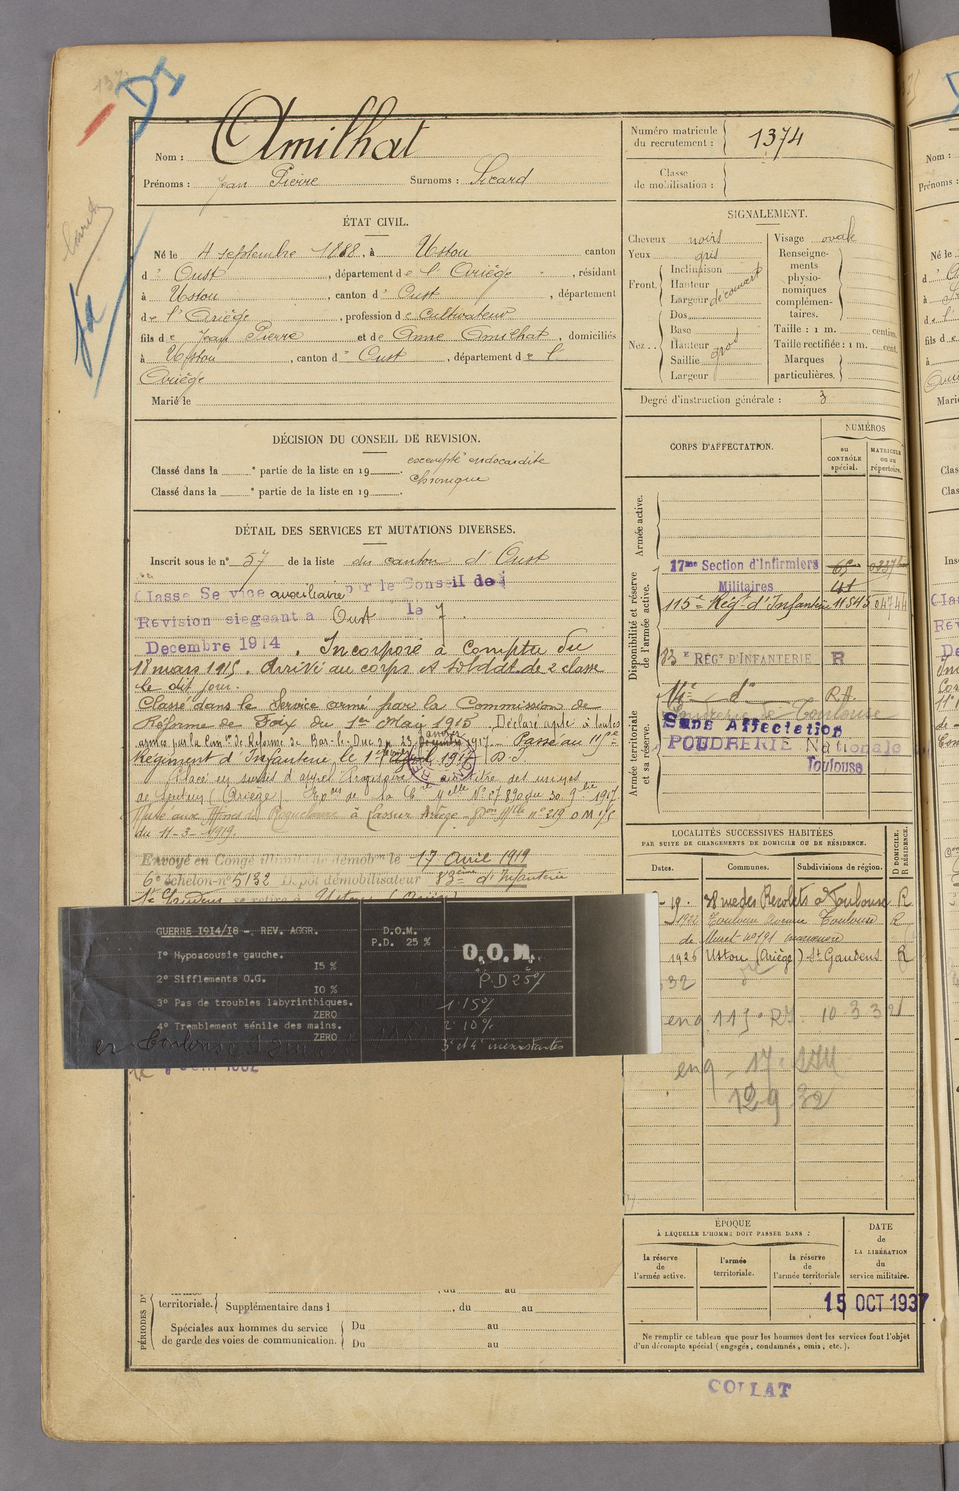 Nom : Amilhat
Prénoms : Jean Pierre Surnoms : Sicard
ÉTAT CIVIL.
Né le 4 septembre 1888, à Ustou canton
d' Oust, département de l' Ariège, résidant
à Ustou, canton d' Oust, département
de l' Ariège, profession de Cultivateur
fils de Jean Pierre et de Anne Amilhat, domiciliés
à Ustou, canton d' Oust, département de l'
Ariège
Marié le
DÉCISION DU CONSEIL DE REVISION.
Classé dans la e partie de la liste en 19 . exempté endocardite
Classé dans la e partie de la liste en 19 . chronique
DÉTAIL DES SERVICES ET MUTATIONS DIVERSES.
Inscrit sous le n° 57 de la liste du canton d' Oust
Classe Service auxiliaire par le Conseil de
Revision siegeant a Oust le 7
Decembre 1914. Incorporé à compter du
18 mars 1915. Arrivé au corps et soldat de 2 classe
le dit jour.
Classé dans le Service armé par la Commission de
Réforme de Foix du 1er Mai 1915. Déclaré apte à toutes
armes par la Com.on de Réforme de Bar-le-Duc du 23 janvier 1917. Passé au 115e
Régiment d'Infanterie le 1er 1917
Placé en sursis d'appel
de Sentein (Ariège)
du 11-3-1919.
Envoyé en Congé illimité de démobon le 17 Avril 1919
6e échelon n° 5132 Dépôt démobilisateur 83ème d'Infanterie
St Gaudens se retire à Ustou (Ariège)
GUERRE 1914/18 - REV. AGGR. D.O.M.
P.D. 25 %
1° Hypoacousie gauche.
15 %
2° Sifflements O.G.
10 %
3° Pas de troubles labyrinthiques.
ZERO
4° Tremblement sénile des mains.
ZERO
D.O.M.
P.D 25%
1 15%
2 10%
3° et 4° inexistantes
PÉRIODES D'
territoriale. Supplémentaire dans l , du au
Spéciales aux hommes du service Du au
de garde des voies de communication. Du au
Numéro matricule
du recrutement : 1374
Classe
de mobilisation :
SIGNALEMENT.
Cheveux noirs
Yeux gris
Front. Inclinaison
Hauteur
Largeur découvert
Nez.. Dos
Base
Hauteur gros
Saillie
Largeur
Visage ovale
Renseigne-
ments
physio-
nomiques
complémen-
taires.
Taille : 1 m. centim.
Taille rectifiée : 1 m. cent.
Marques
particulières.
Degré d'instruction générale : 3
CORPS D'AFFECTATION.
NUMÉROS
DU CONTRÔLE spécial.
MATRICULE OU AU répertoire.
Armée active.
Disponibilité et réserve de l'armée active.
17me Section d'Infirmiers
Militaires
115e Régt d'Infanterie 11545
83E RÉGT D'INFANTERIE R
14e do R.A.
Armée territoriale et sa réserve.
Poudrerie de Toulouse
Sans Affectation
POUDRERIE Nationale
Toulouse
LOCALITÉS SUCCESSIVES HABITÉES
PAR SUITE DE CHANGEMENTS DE DOMICILE OU DE RÉSIDENCE.
Dates. Communes. Subdivisions de région.
D DOMICILE. R RÉSIDENCE.
-19. 28 rue des Récolets à Toulouse R
1922 Toulouse Avenue Toulouse R
de Muret n° 191
1926 Ustou (Ariège) St Gaudens R
32
eng 115e RI. 10 3 32
eng 17e
12 9 32
ÉPOQUE
À LAQUELLE L'HOMME DOIT PASSER DANS :
la réserve de l'armée active.
l'armée territoriale.
la réserve de l'armée territoriale
DATE
de
LA LIBÉRATION
du
service militaire.
15 OCT 1937
Ne remplir ce tableau que pour les hommes dont les services font l'objet
d'un décompte spécial (engagés, condamnés, omis, etc.).
COLLAT